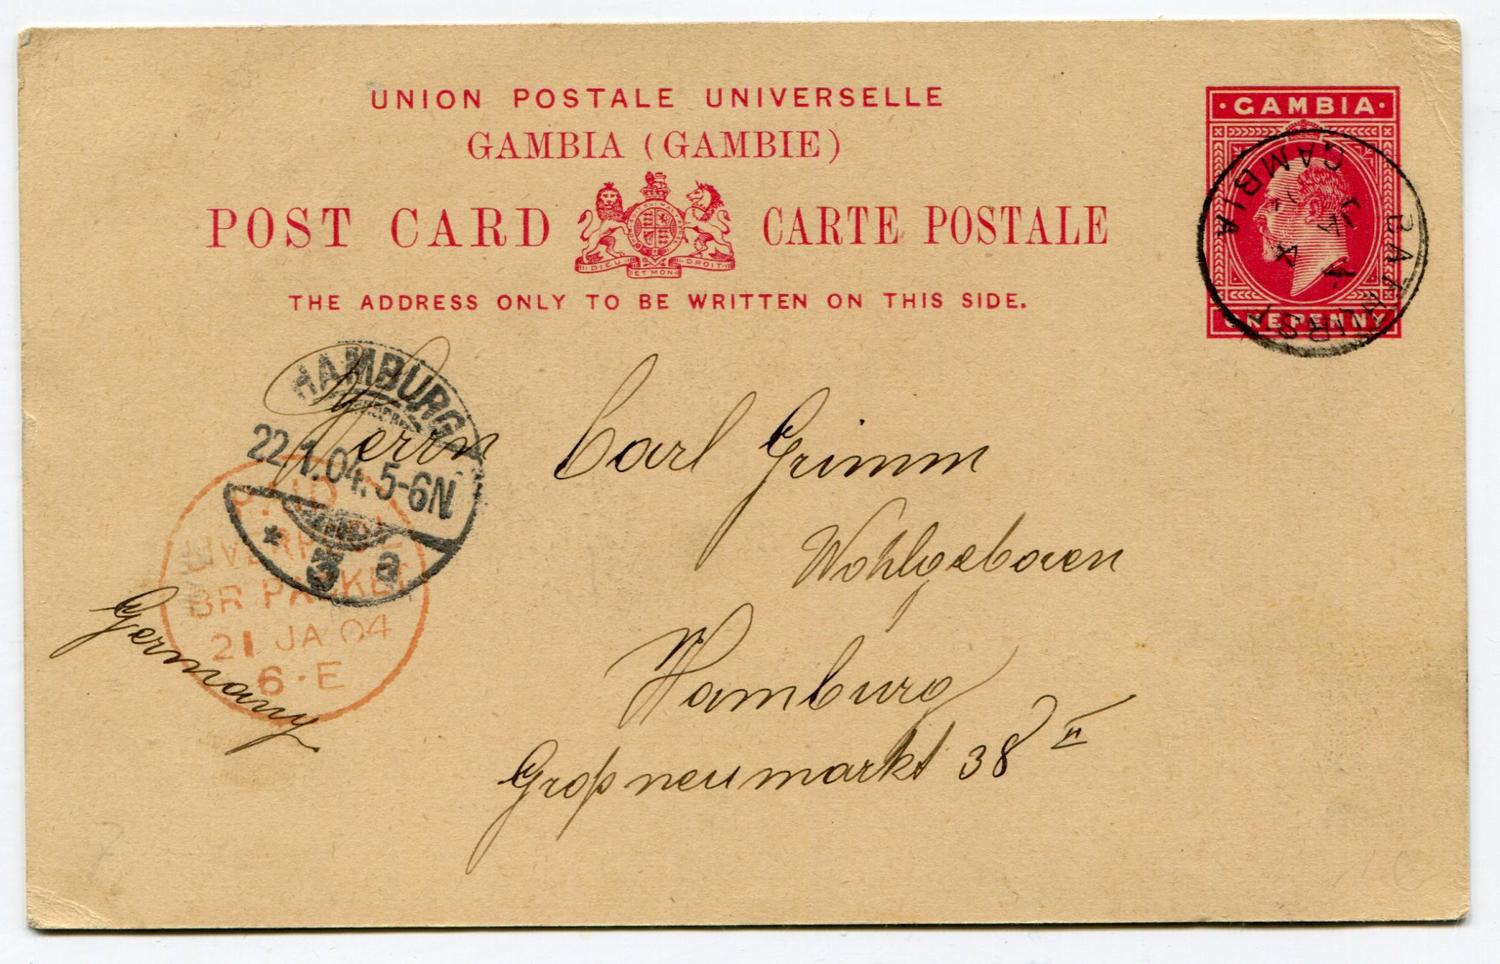 UNION POSTALE UNIVERSELLE
GAMBIA (GAMBIE)
POST CARD CARTE POSTALE
DIEU ET MON DROIT
THE ADDRESS ONLY TO BE WRITTEN ON THIS SIDE.
· GAMBIA ·
ONE PENNY
BATHURST
GAMBIA
JA
4
HAMBURG
22.1.04.5-6N.
* 3 a
PAID
LIVERPOOL
BR PACKET
21 JA 04
6·E
Herrn Carl Grimm
Wohlgeboren
Hamburg
Großneumarkt 38 II
Germany